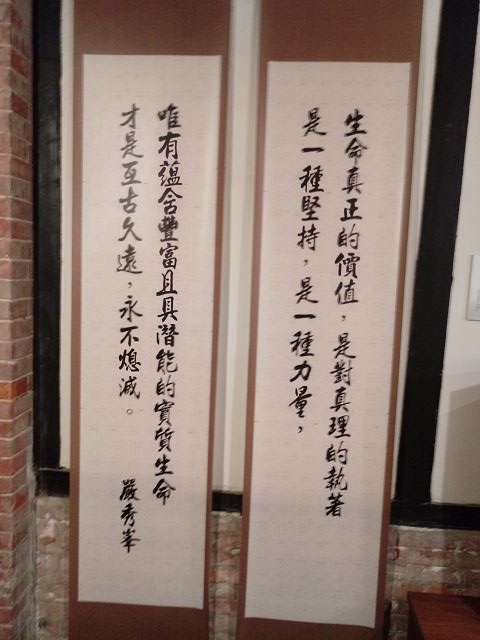 生命真正的價值，是對真理的執著
是一種堅持，是一種力量，
唯有蘊含豐富且具潛能的實質生命
才是亙古久遠，永不熄滅。
嚴秀峯